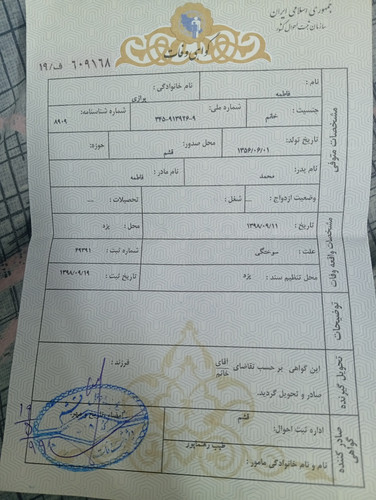 جمهوری اسلامی ایران
سازمان ثبت احوال کشور
گواهی وفات
۶۰۹۱۶۸ ف/۱۹
مشخصات متوفی
نام : فاطمه
نام خانوادگی :
جنسیت : خانم
شماره ملی: ۳۴۵۰۹۱۳۹۲۶-۹
شماره شناسنامه: ۸۹۰۹
تاریخ تولد: ۱۳۵۶/۰۶/۰۱
محل صدور: قشم
حوزه:
نام پدر: محمد
نام مادر: فاطمه
وضعیت ازدواج : ...
شغل :
تحصیلات : ...
مشخصات واقعه وفات
تاریخ : ۱۳۹۸/۰۹/۱۱
محل : یزد
علت : سوختگی
شماره ثبت : ۶۹۳۹۱
محل تنظیم سند : یزد
تاریخ ثبت : ۱۳۹۸/۰۹/۱۹
توضیحات
تحویل گیرنده
این گواهی بر حسب تقاضای آقای
خانم
فرزند :
صادر و تحویل گردید.
صادر کننده گواهی
اداره ثبت احوال: قشم
نام و نام خانوادگی مامور : طیب رهنماپور